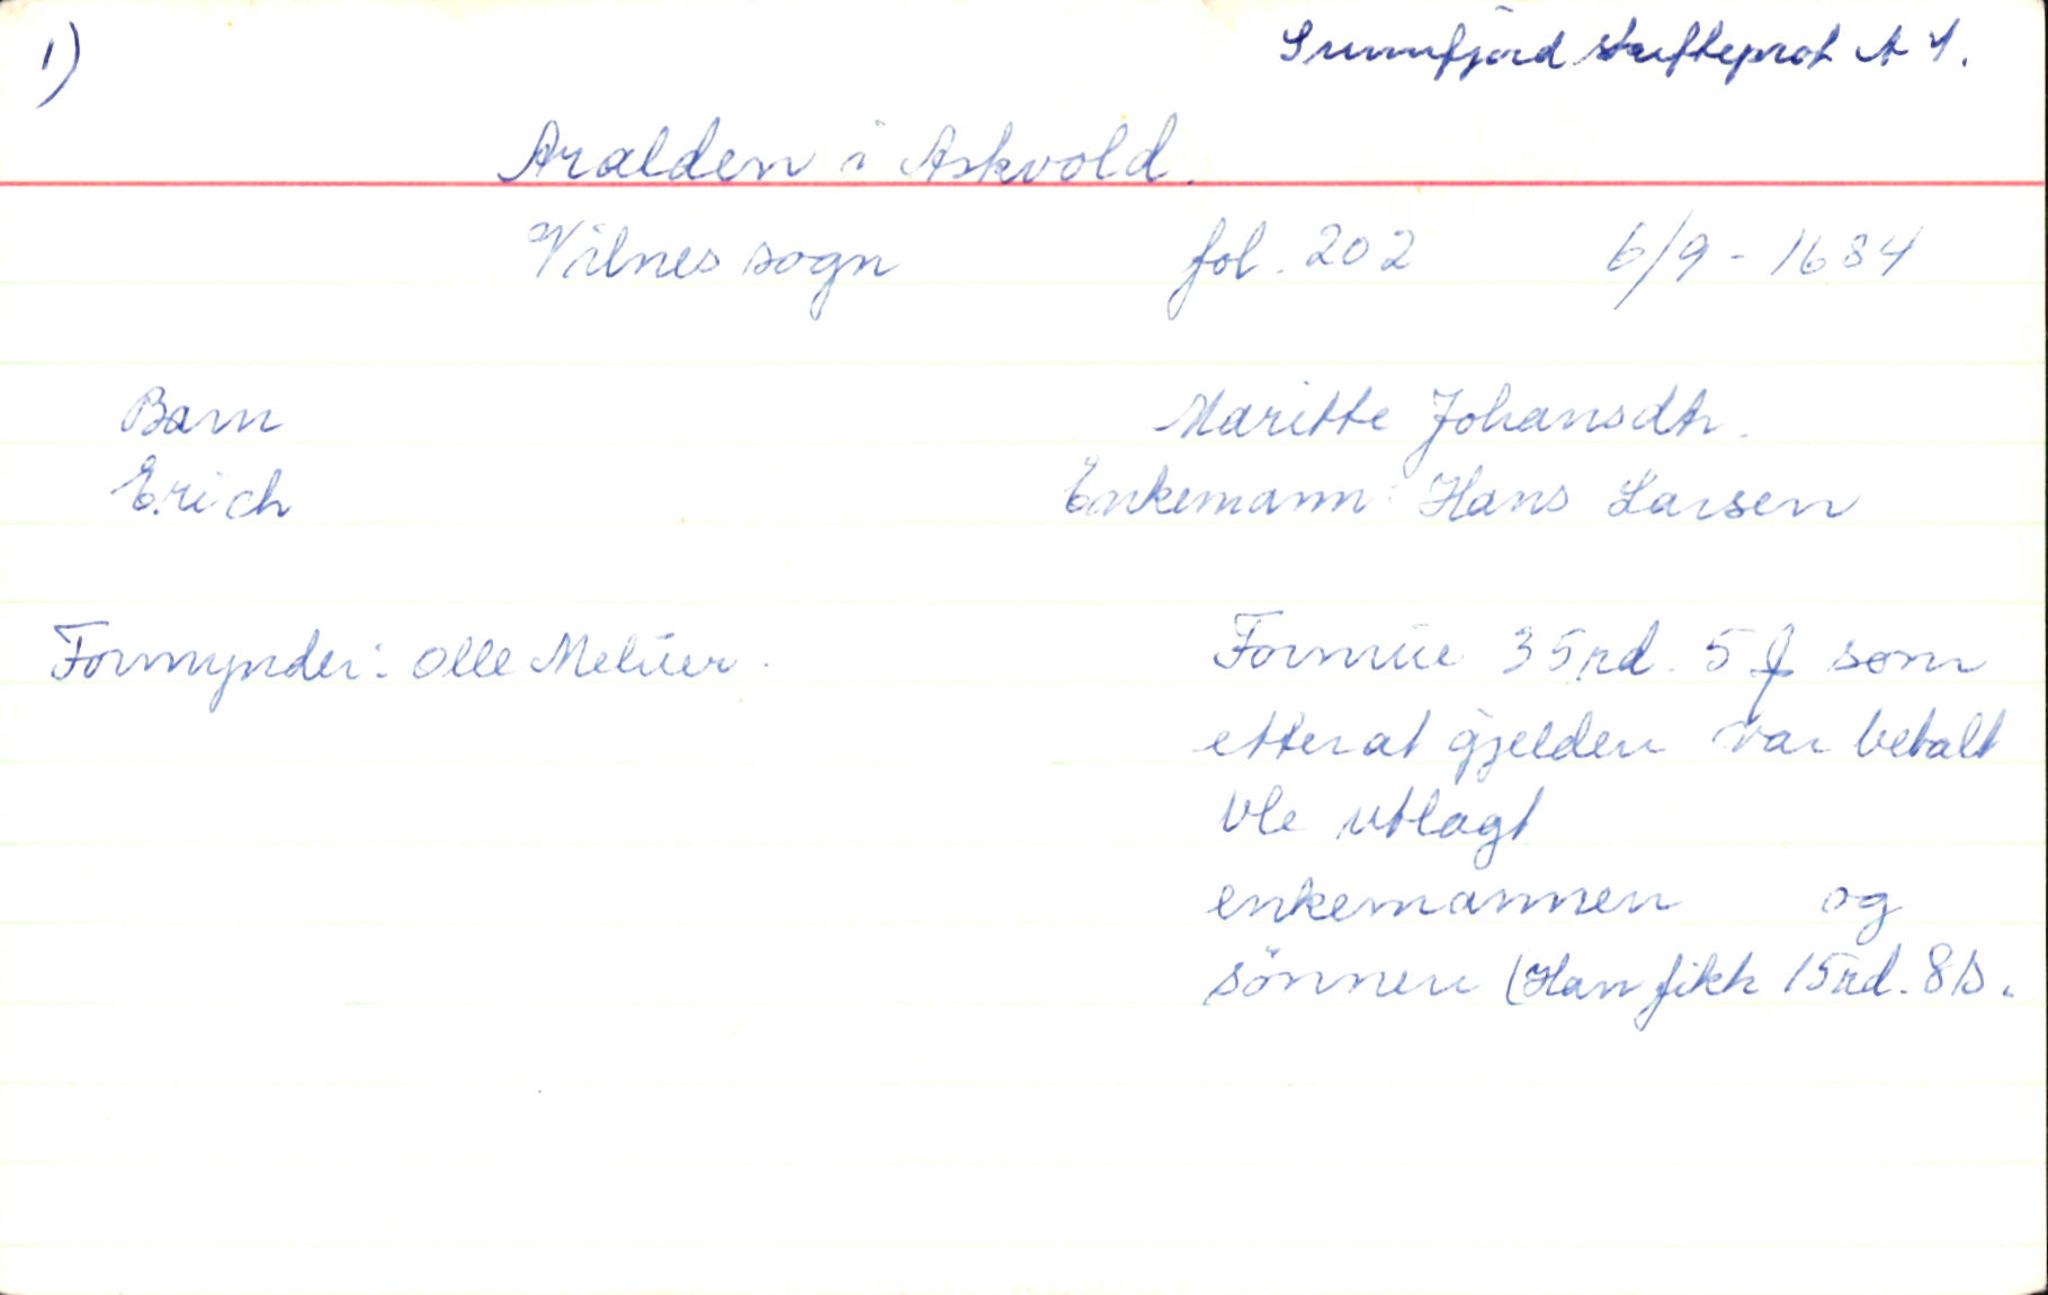 1)
Sunnfjord skifteprot A 1.
Aralden i Askvold.
Vilnes sogn fol. 202 6/9 - 1684
Barn Maritte Johansdtr.
Erich Enkemann: Hans Larsen
Formynder: Olle Melüer. Formue 35 rd. 5 som
etter at gjelden var betalt
ble utlagt
enkemannen og
sönnen (Han fikk 15 rd. 8 s.